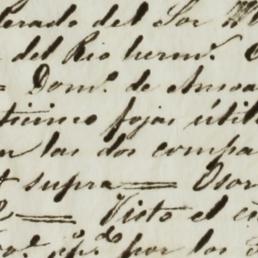 erado del Sor M
del Rio herm.º
= Dom.º de Ansoa
ticinco fojas útil
n las dos compa
t supra = Osor
= Visto el
por los